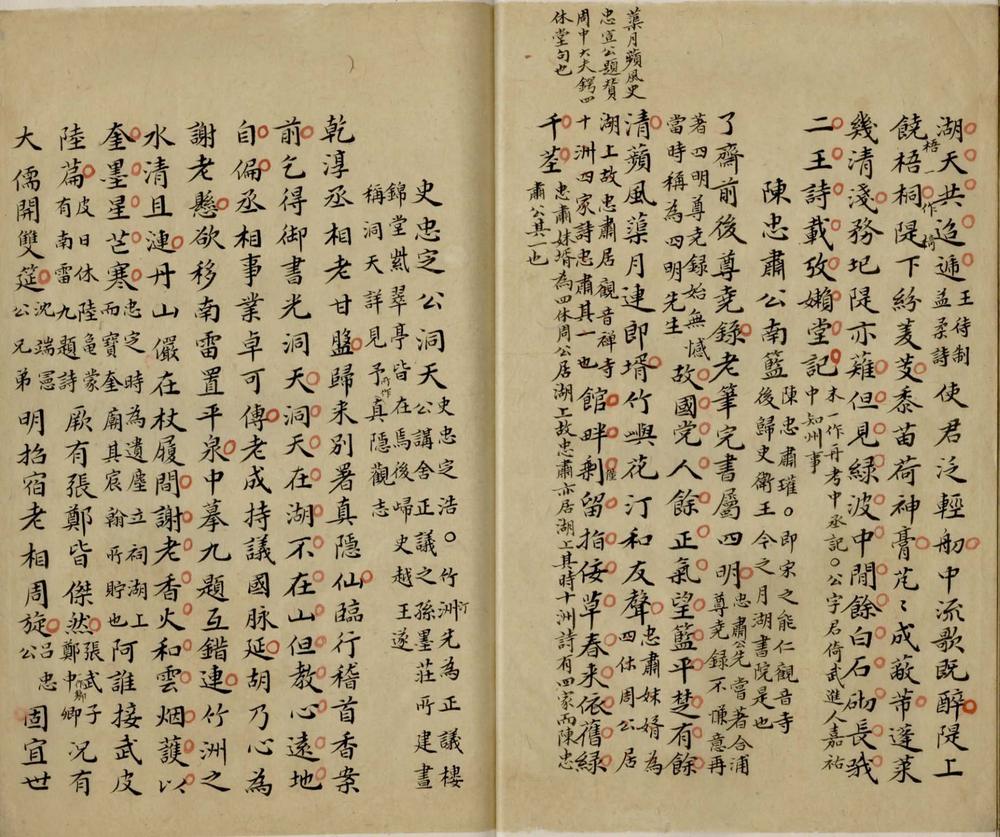 蕖月蘋風史
忠宣公題賛
周中大夫鍔四
休堂句也
湖天共迢遞王待制益柔詩使君泛輕舠中流歌既醉隄上
饒梧桐梧一作椅隄下紛菱芰黍苗荷神膏芃〻成蔽芾蓬萊
幾清淺務圯隄亦薙但見綠波中閒餘白石砌長我
二王詩載攷嬾堂記末一作丹考中丞記○公字君倚武進人嘉祐中知州事
陳忠肅公南籃陳忠肅瓘○即宋之能仁觀音寺後歸史衛王今之月湖書院是也
了齋前後尊堯錄老筆完書屬四明忠肅公先嘗著合浦尊堯錄不慊意再
著四明尊堯錄始無憾當時稱為四明先生故國党人餘正氣望藍平楚有餘
清蘋風蕖月連即壻竹嶼花汀和友聲忠肅妹婿為四休周公居
湖上故忠肅居觀音禅寺十洲四家詩忠肅其一也館畔剩僅留指佞草春來依舊綠
千荃忠肅妹壻為四休周公居湖上故忠肅亦居湖上其時十洲詩有四家而陳忠肅公其一也
史忠定公洞天史忠定浩○竹洲汀先為正議樓公講舍正議之孫墨莊所建晝
錦堂紫翠亭皆在焉後歸史越王遂稱洞天詳見予所作真隱觀志
乾淳丞相老甘盤歸来別署真隱仙臨行稽首香案
前乞得御書光洞天洞天在湖不在山但教心遠地
自偏丞相事業卓可傳老成持議國脉延胡乃心為
謝老懸欲移南雷置平泉中摹九題互錯連竹洲之
水清且漣丹山儼在杖履間謝老香火和雲烟護以
奎墨星芒寒忠定時為遺塵立祠湖上而寶奎廟其宸翰所貯也阿誰接武皮
陸篇皮日休陸龜蒙有南雷九題詩厥有張鄭皆傑然張武子鄭中作鄉卿况有
大儒開雙筵沈端憲公兄弟明招宿老相周旋呂忠公固宜世